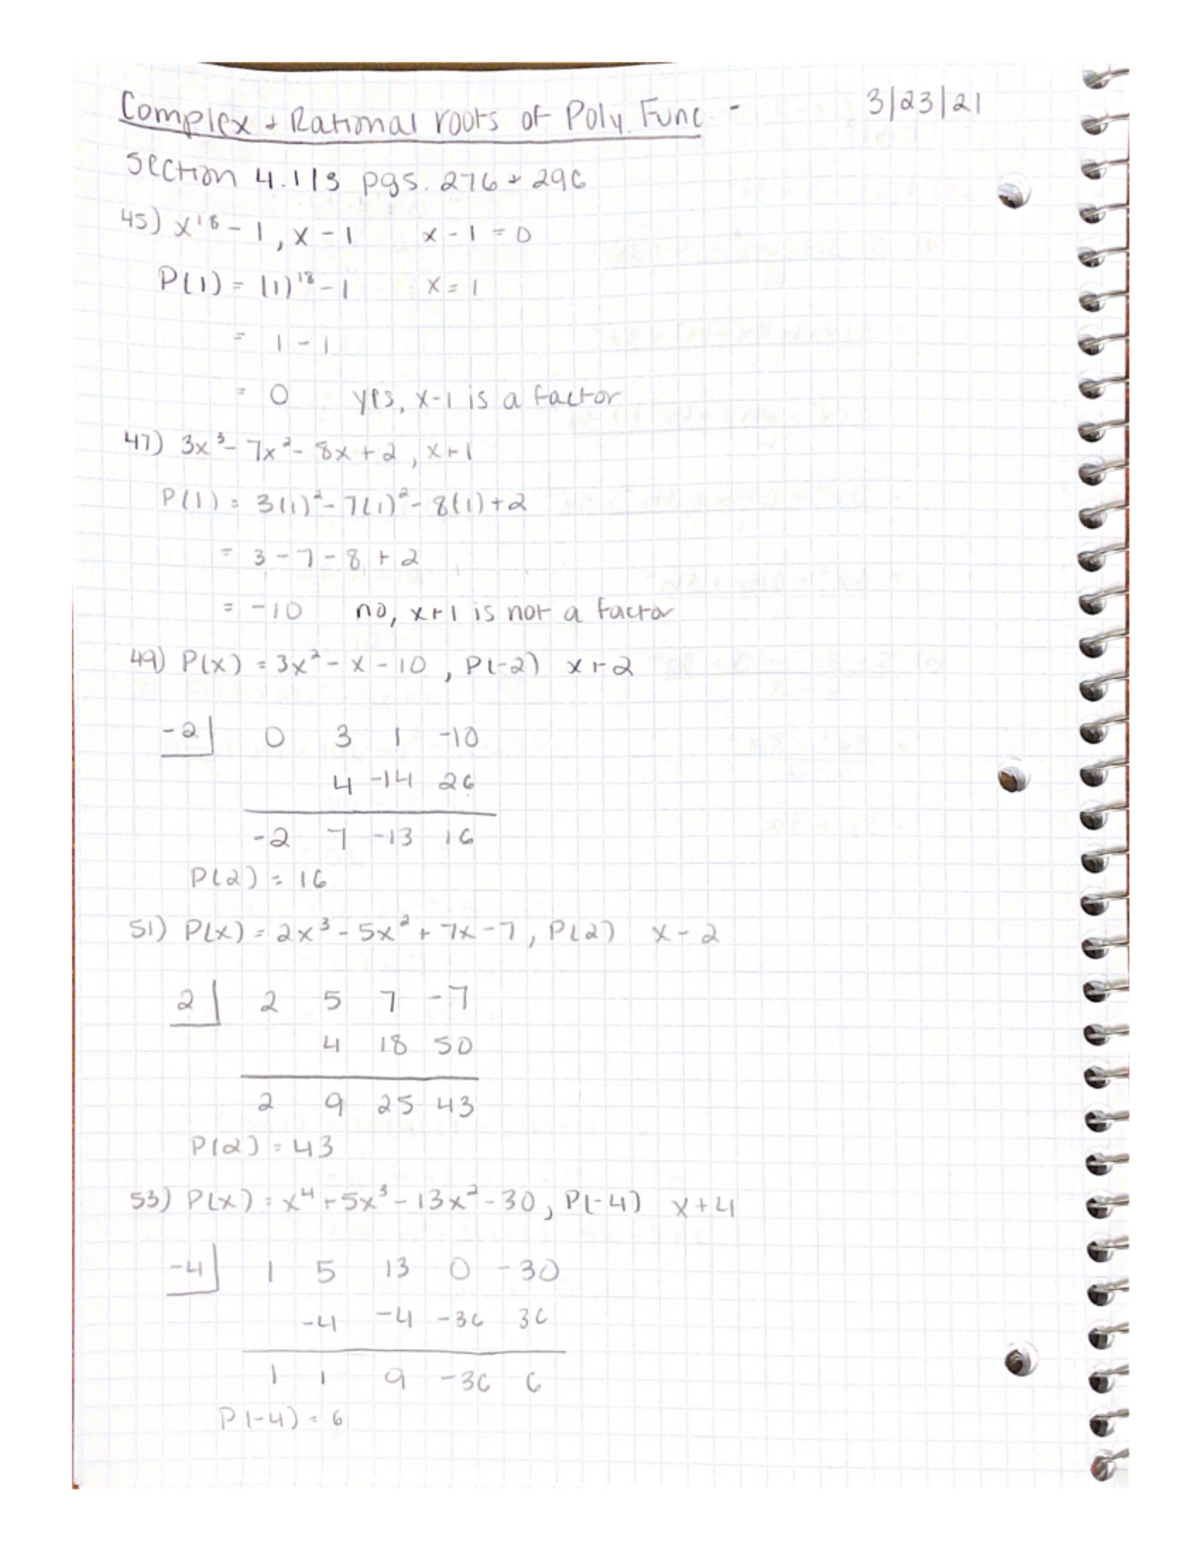 Complex + Rational roots of Poly. Func. - 3/23/21
Section 4.1/3 pgs. 276 + 296
45) x¹⁸ - 1, x - 1 x - 1 = 0
P(1) = (1)¹⁸ - 1 x = 1
= 1 - 1
= 0 yes, x-1 is a factor
47) 3x³ - 7x² - 8x + 2, x+1
P(1) = 3(1)² - 7(1)² - 8(1) + 2
= 3 - 7 - 8 + 2
= -10 no, x+1 is not a factor
49) P(x) = 3x² - x - 10, P(-2) x+2
-2 0 3 1 -10
4 -14 26
-2 7 -13 16
P(2) = 16
51) P(x) = 2x³ - 5x² + 7x - 7, P(2) x - 2
2 2 5 7 -7
4 18 50
2 9 25 43
P(2) = 43
53) P(x) = x⁴ + 5x³ - 13x² - 30, P(-4) x + 4
-4 1 5 13 0 -30
-4 -4 -36 36
1 1 9 -36 6
P(-4) = 6